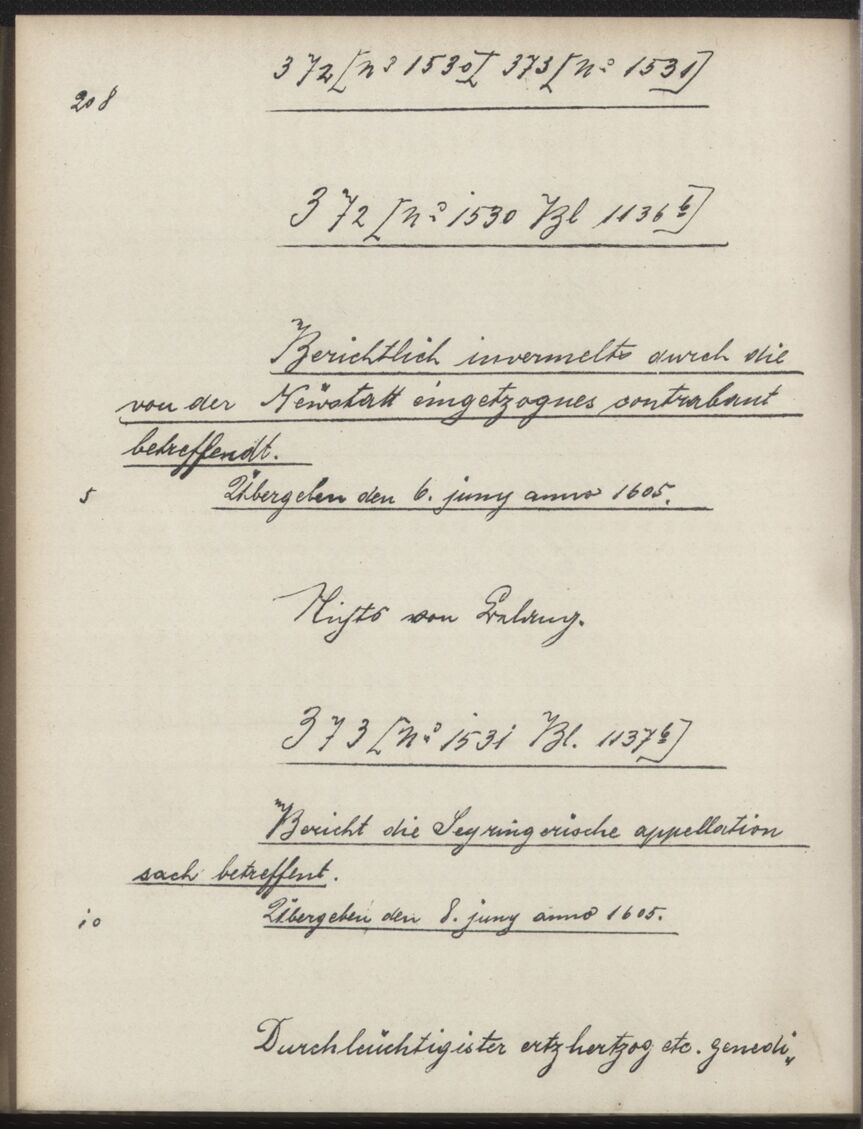 372 [nº 1530] 373 [nº 1531]
208
372 [nº 1530 Bl 1136 b]
Berichtlich invermelts durch die
von der Newstatt eingetzognes contrabant
betreffendt.
5 Übergeben den 6. juny anno 1605.
Nichts von Belang.
373 [nº 1531 Bl. 1137 b]
Bericht die Seyringerische appellation
sach betreffent.
10 Übergeben den 8. juny anno 1605.
Durchleüchtigister ertzhertzog etc. genedi„